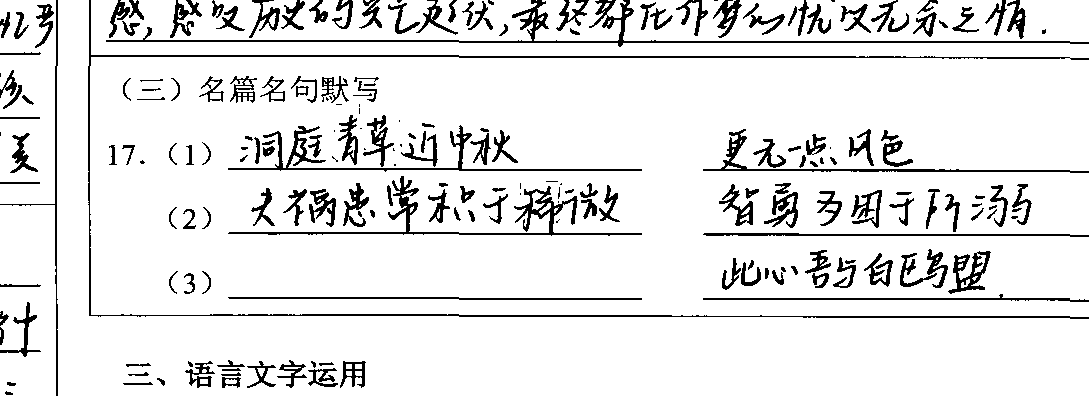 感，感叹历史的兴亡起伏，最终都化作梦幻忧叹无奈之情．
（三）名篇名句默写
17.（1）洞庭青草近中秋 更无一点风色
（2）夫祸患常积于稀微 智勇多困于所溺
（3） 此心吾与白鸥盟.
三、语言文字运用